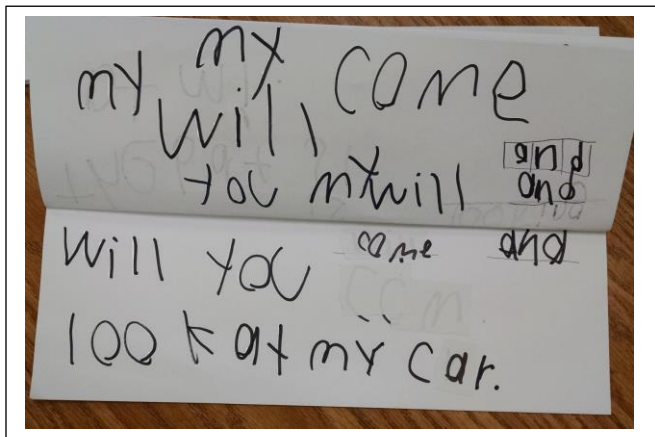 my my come
will
and
you my will and
will you come and
look at my car.